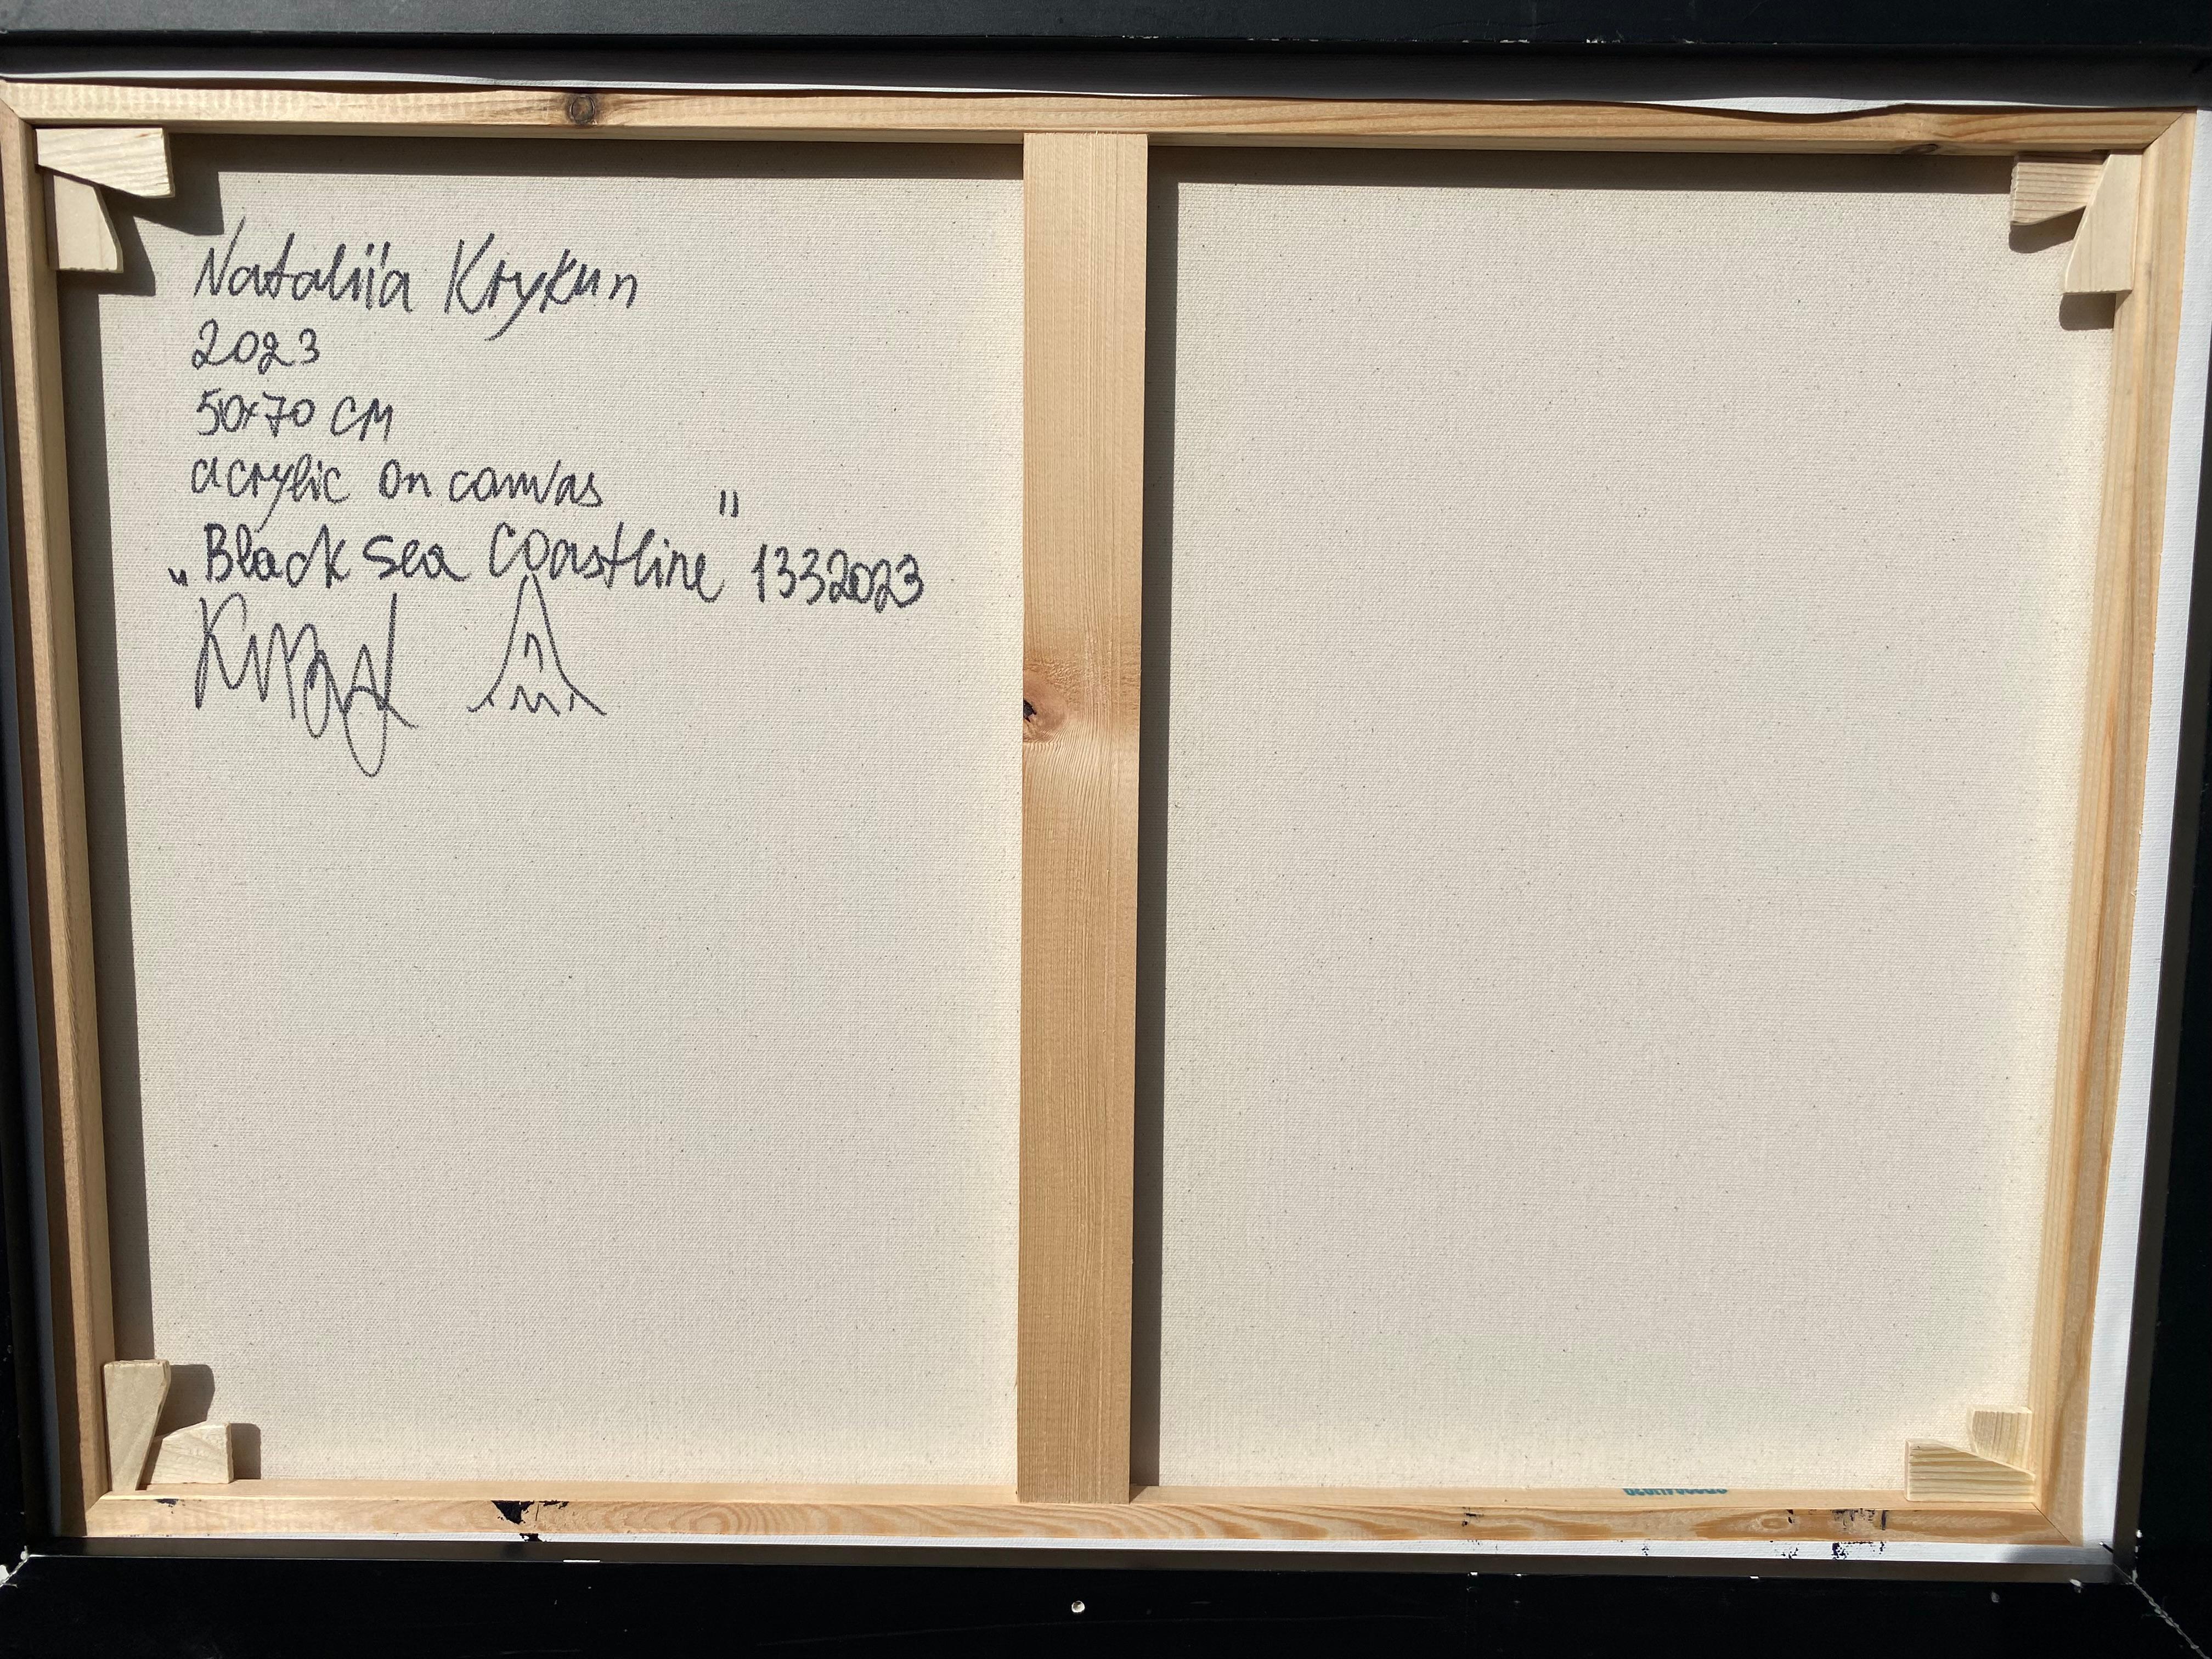 Nataliia Krykun
2023
50x70 CM
acrylic on canvas
„Black sea Coastline" 1332023